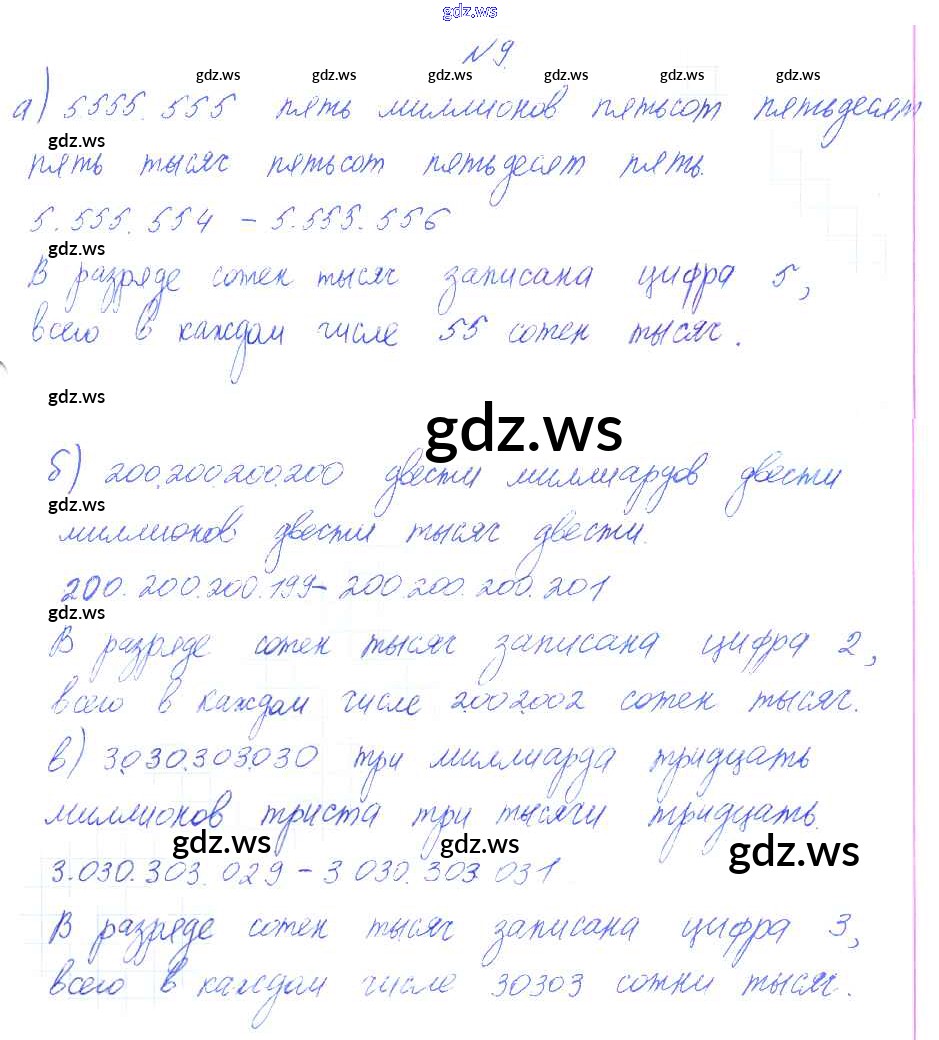 gdz.ws
№9.
gdz.ws gdz.ws gdz.ws gdz.ws gdz.ws gdz.ws
а) 5.555.555 пять миллионов пятьсот пятьдесят
gdz.ws
пять тысяч пятьсот пятьдесят пять.
5.555.554 – 5.555.556
gdz.ws
В разряде сотен тысяч записана цифра 5,
всего в каждом числе 55 сотен тысяч.
gdz.ws
gdz.ws
б) 200.200.200.200 двести миллиардов двести
gdz.ws
миллионов двести тысяч двести.
200.200.200.199 – 200.200.200.201
gdz.ws
В разряде сотен тысяч записана цифра 2,
всего в каждом числе 2.002.002 сотен тысяч.
в) 3.030.303.030 три миллиарда тридцать
миллионов триста три тысячи тридцать.
gdz.ws gdz.ws gdz.ws
3.030.303.029 – 3 030.303 031
В разряде сотен тысяч записана цифра 3,
всего в каждом числе 30303 сотни тысяч.